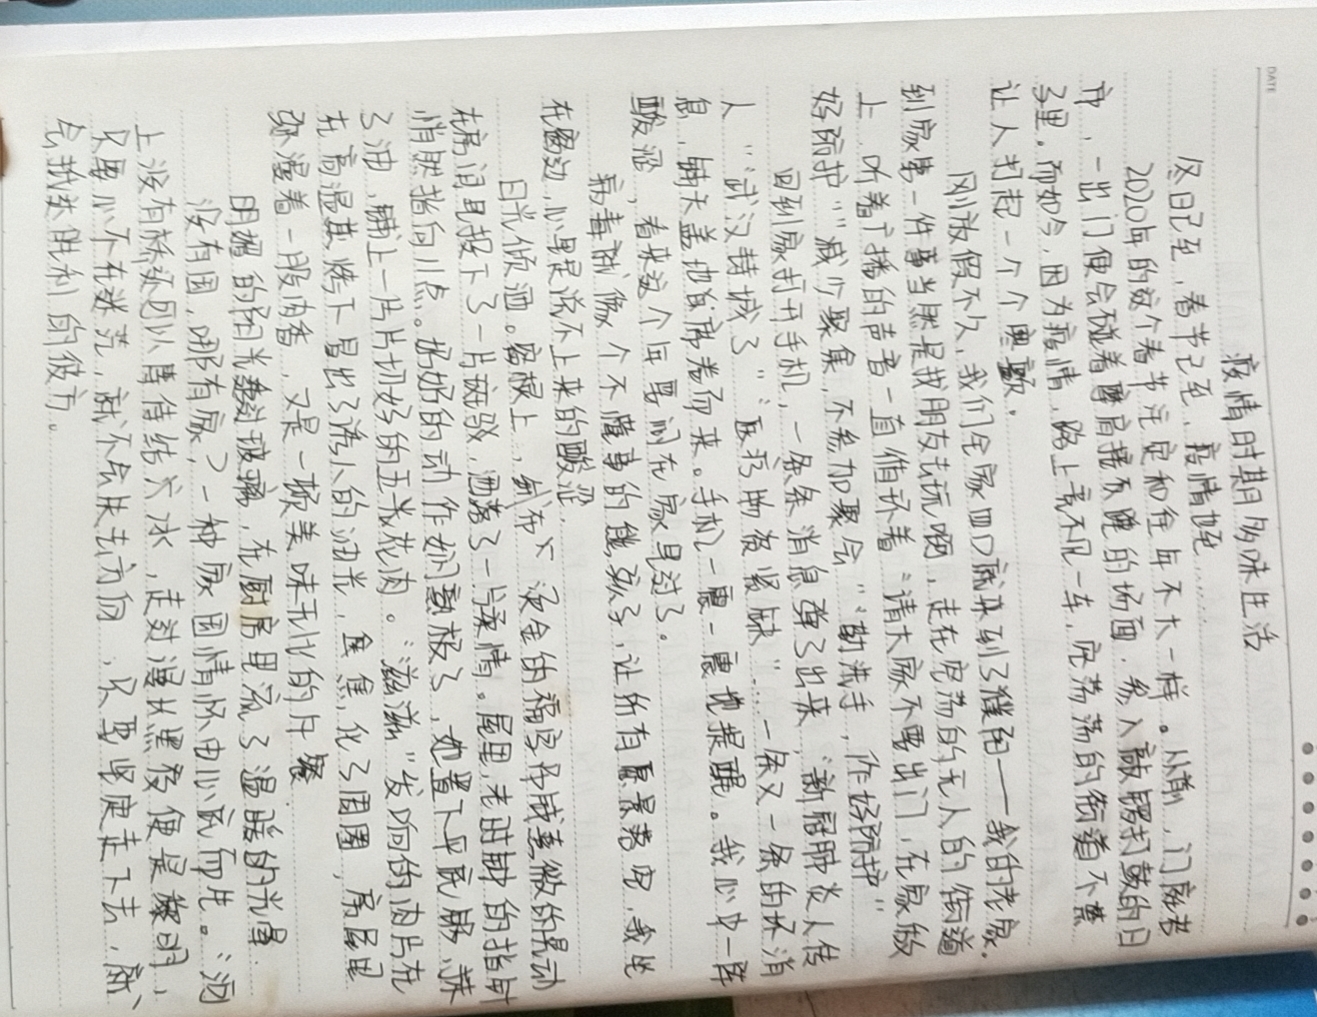 DATE
疫情时期多味生活
冬日已至，春节已至，疫情也至……
2020年的这个春节注定和往年不大一样。从前，门庭若
市，一出门便会碰着摩肩接踵的场面，家人敲锣打鼓的日
子里。而如今，因为疫情，路上竟不见一车，空荡荡的街道不禁
让人打起一个个寒颤。
刚放假不久，我们全家四口就来到了濮阳——我的老家。
到家第一件事当然是找朋友去玩啊，走在空荡的无人的街道
上，听着广播的声音一直循环着“请大家不要出门，在家做
好防护”“减少聚集，不参加聚会”“勤洗手，作好防护”
回到家打开手机，一条条消息弹了出来，“新冠肺炎人传
人”“武汉封城了”“医药物资紧缺”……一条又一条的坏消
息，铺天盖地席卷而来。手机一震一震地提醒。我心中一阵
酸涩，看来这个年要闷在家里过了。
病毒就像个不懂事的熊孩子，让所有愿景落空，我坐
在窗边，心里是说不上来的酸涩。
日光倾洒。窗棂上，剑布 浸金的福字伴城意微的晃动
在房间里投下了一片斑驳，洒落了一片柔情。屋里，老时钟的指针
悄然指向八点。妈妈的动作娴熟极了，她置下平底锅，抹
了油，铺上一片片切好的五米花肉。“滋滋”发响的肉片在
在高温煎烤下冒出了诱人的油光，金焦化了周围，房屋里
弥漫着一股肉香，又是一场美味无比的片餐
明耀的阳光散过玻璃，在厨房里流了温暖的光晕。
没有国，哪有家？一种家国情怀由心底而生。“河
上没有桥还可以等待结成冰，走过漫长黑夜便是黎明，
只要心不在迷荒，就不会失去方向，只要坚定走下去，就
会抵达胜利的彼方。